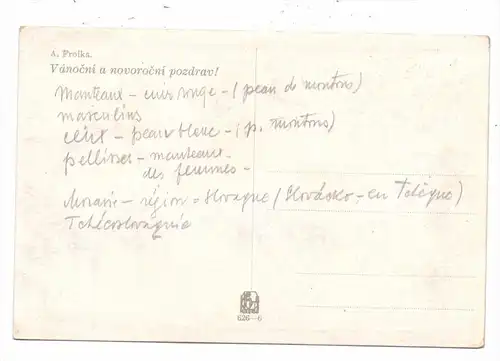 A. Frolka.
Vánoční a novoroční pozdrav!
Manteaux - cuir rouge - (peau de moutons)
masculins
ceux - peau blanc - (p. moutons)
pelisses - manteaux -
des femmes -
Moravie - région = Slovaque (Slovácko - en Tchèque)
Tchécoslovaquie
626-6